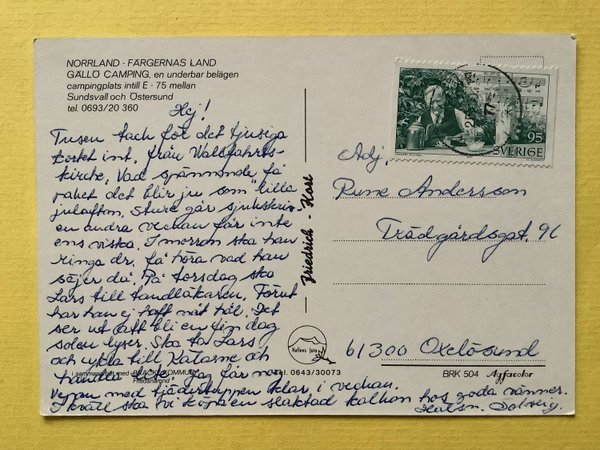 NORRLAND · FÄRGERNAS LAND
GÄLLÖ CAMPING, en underbar belägen
campingplats intill E · 75 mellan
Sundsvall och Östersund
tel. 0693/20 360
Hej!
Tusen tack för det tjusiga
kortet int. från Wallfahrts-
kirche. Vad spännande få
paket det blir ju som "lilla
julafton. Sture går sjukskriv.
en andra veckan får inte
ens vistas. I morron ska han
ringa dr. få höra vad han
säjer då. På torsdag ska
Lars till tandläkaren. Förut
har han ej haft nåt hål. Det
ser ut att bli en fin dag
solen lyser. Ska ta Lars
och cykla till
handla
i samarbete med BRÄCKE KOMMUN
Veppen med fjäderskuppen klar i veckan.
I kväll ska vi köpa en slaktad kalkon hos goda vänner.
Hälsn. Solveig.
Friedrich - Karl
Hallens foto
Tel. 0643/30073
95
SVERIGE
Adj.
Rune Andersson
Trädgårdsgat. 9C
61300 Oxelösund
BRK 504 Agfacolor